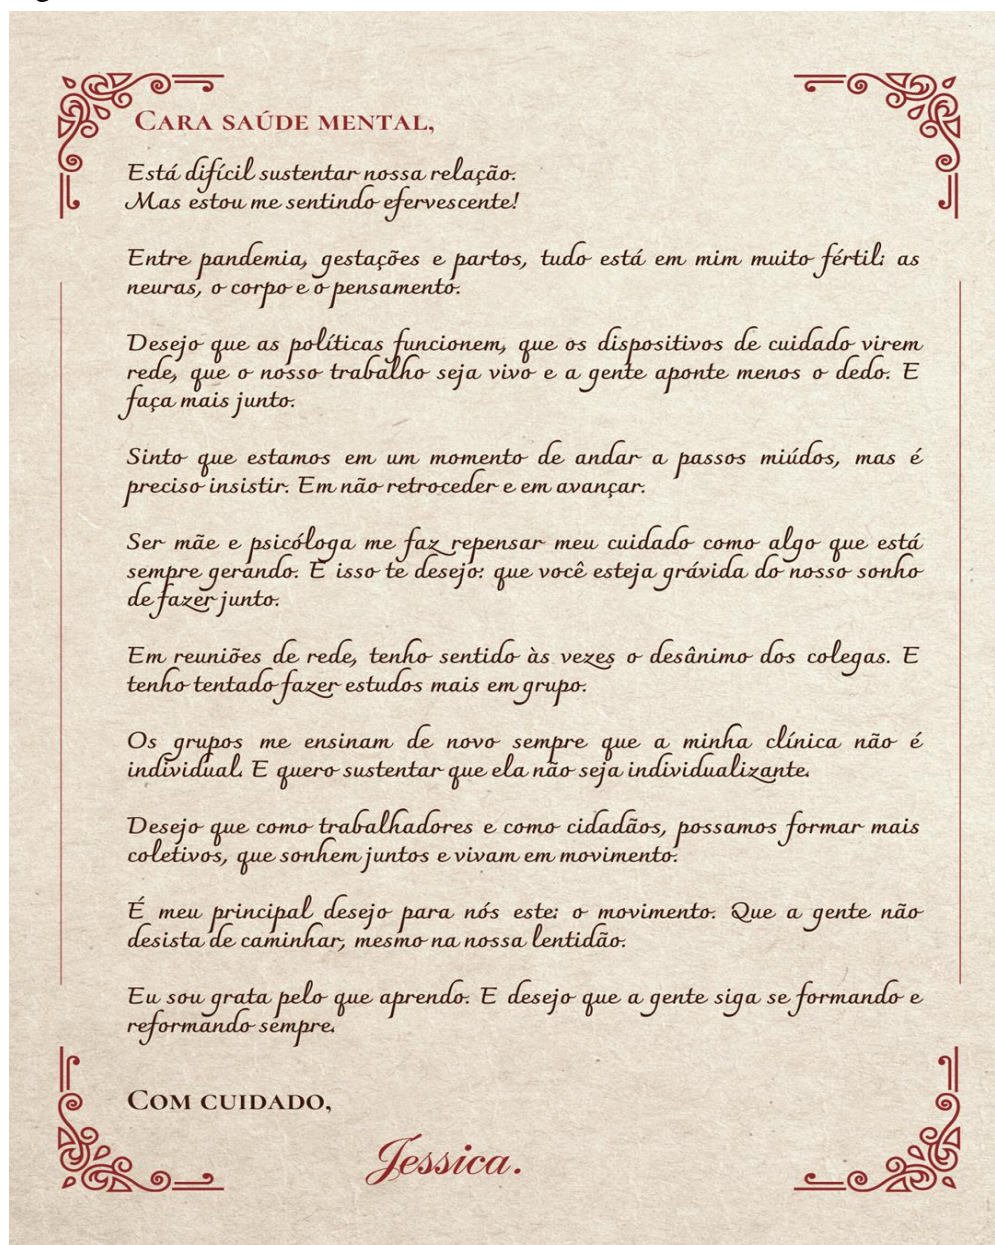 Cara saúde mental,
Está difícil sustentar nossa relação.
Mas estou me sentindo efervescente!
Entre pandemia, gestações e partos, tudo está em mim muito fértil: as
neuras, o corpo e o pensamento.
Desejo que as políticas funcionem, que os dispositivos de cuidado virem
rede, que o nosso trabalho seja vivo e a gente aponte menos o dedo. E
faça mais junto.
Sinto que estamos em um momento de andar a passos miúdos, mas é
preciso insistir. Em não retroceder e em avançar.
Ser mãe e psicóloga me faz repensar meu cuidado como algo que está
sempre gerando. E isso te desejo: que você esteja grávida do nosso sonho
de fazer junto.
Em reuniões de rede, tenho sentido às vezes o desânimo dos colegas. E
tenho tentado fazer estudos mais em grupo.
Os grupos me ensinam de novo sempre que a minha clínica não é
individual. E quero sustentar que ela não seja individualizante.
Desejo que como trabalhadores e como cidadãos, possamos formar mais
coletivos, que sonhem juntos e vivam em movimento.
É meu principal desejo para nós este: o movimento. Que a gente não
desista de caminhar, mesmo na nossa lentidão.
Eu sou grata pelo que aprendo. E desejo que a gente siga se formando e
reformando sempre.
Com cuidado,
Jessica.